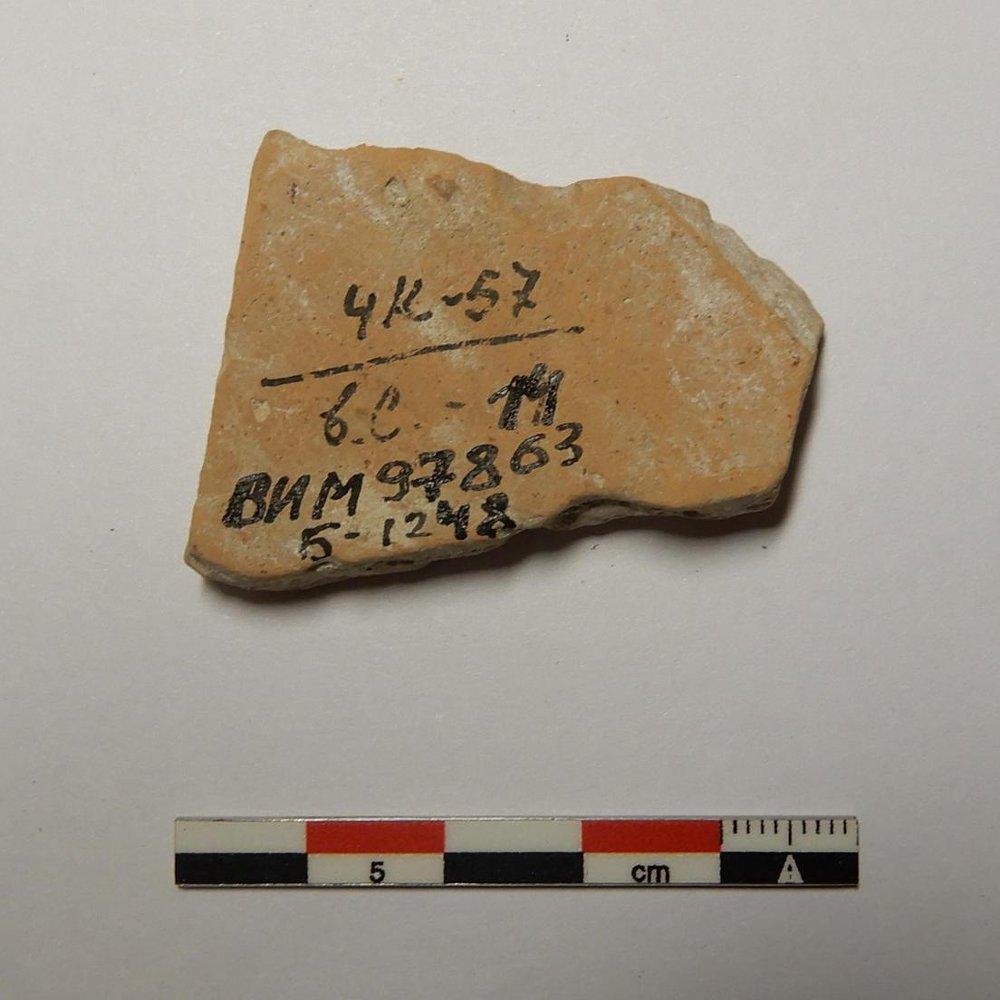 ЧК-57
б.С. - 14
ВИМ 97863
Б-1248
5 cm
A